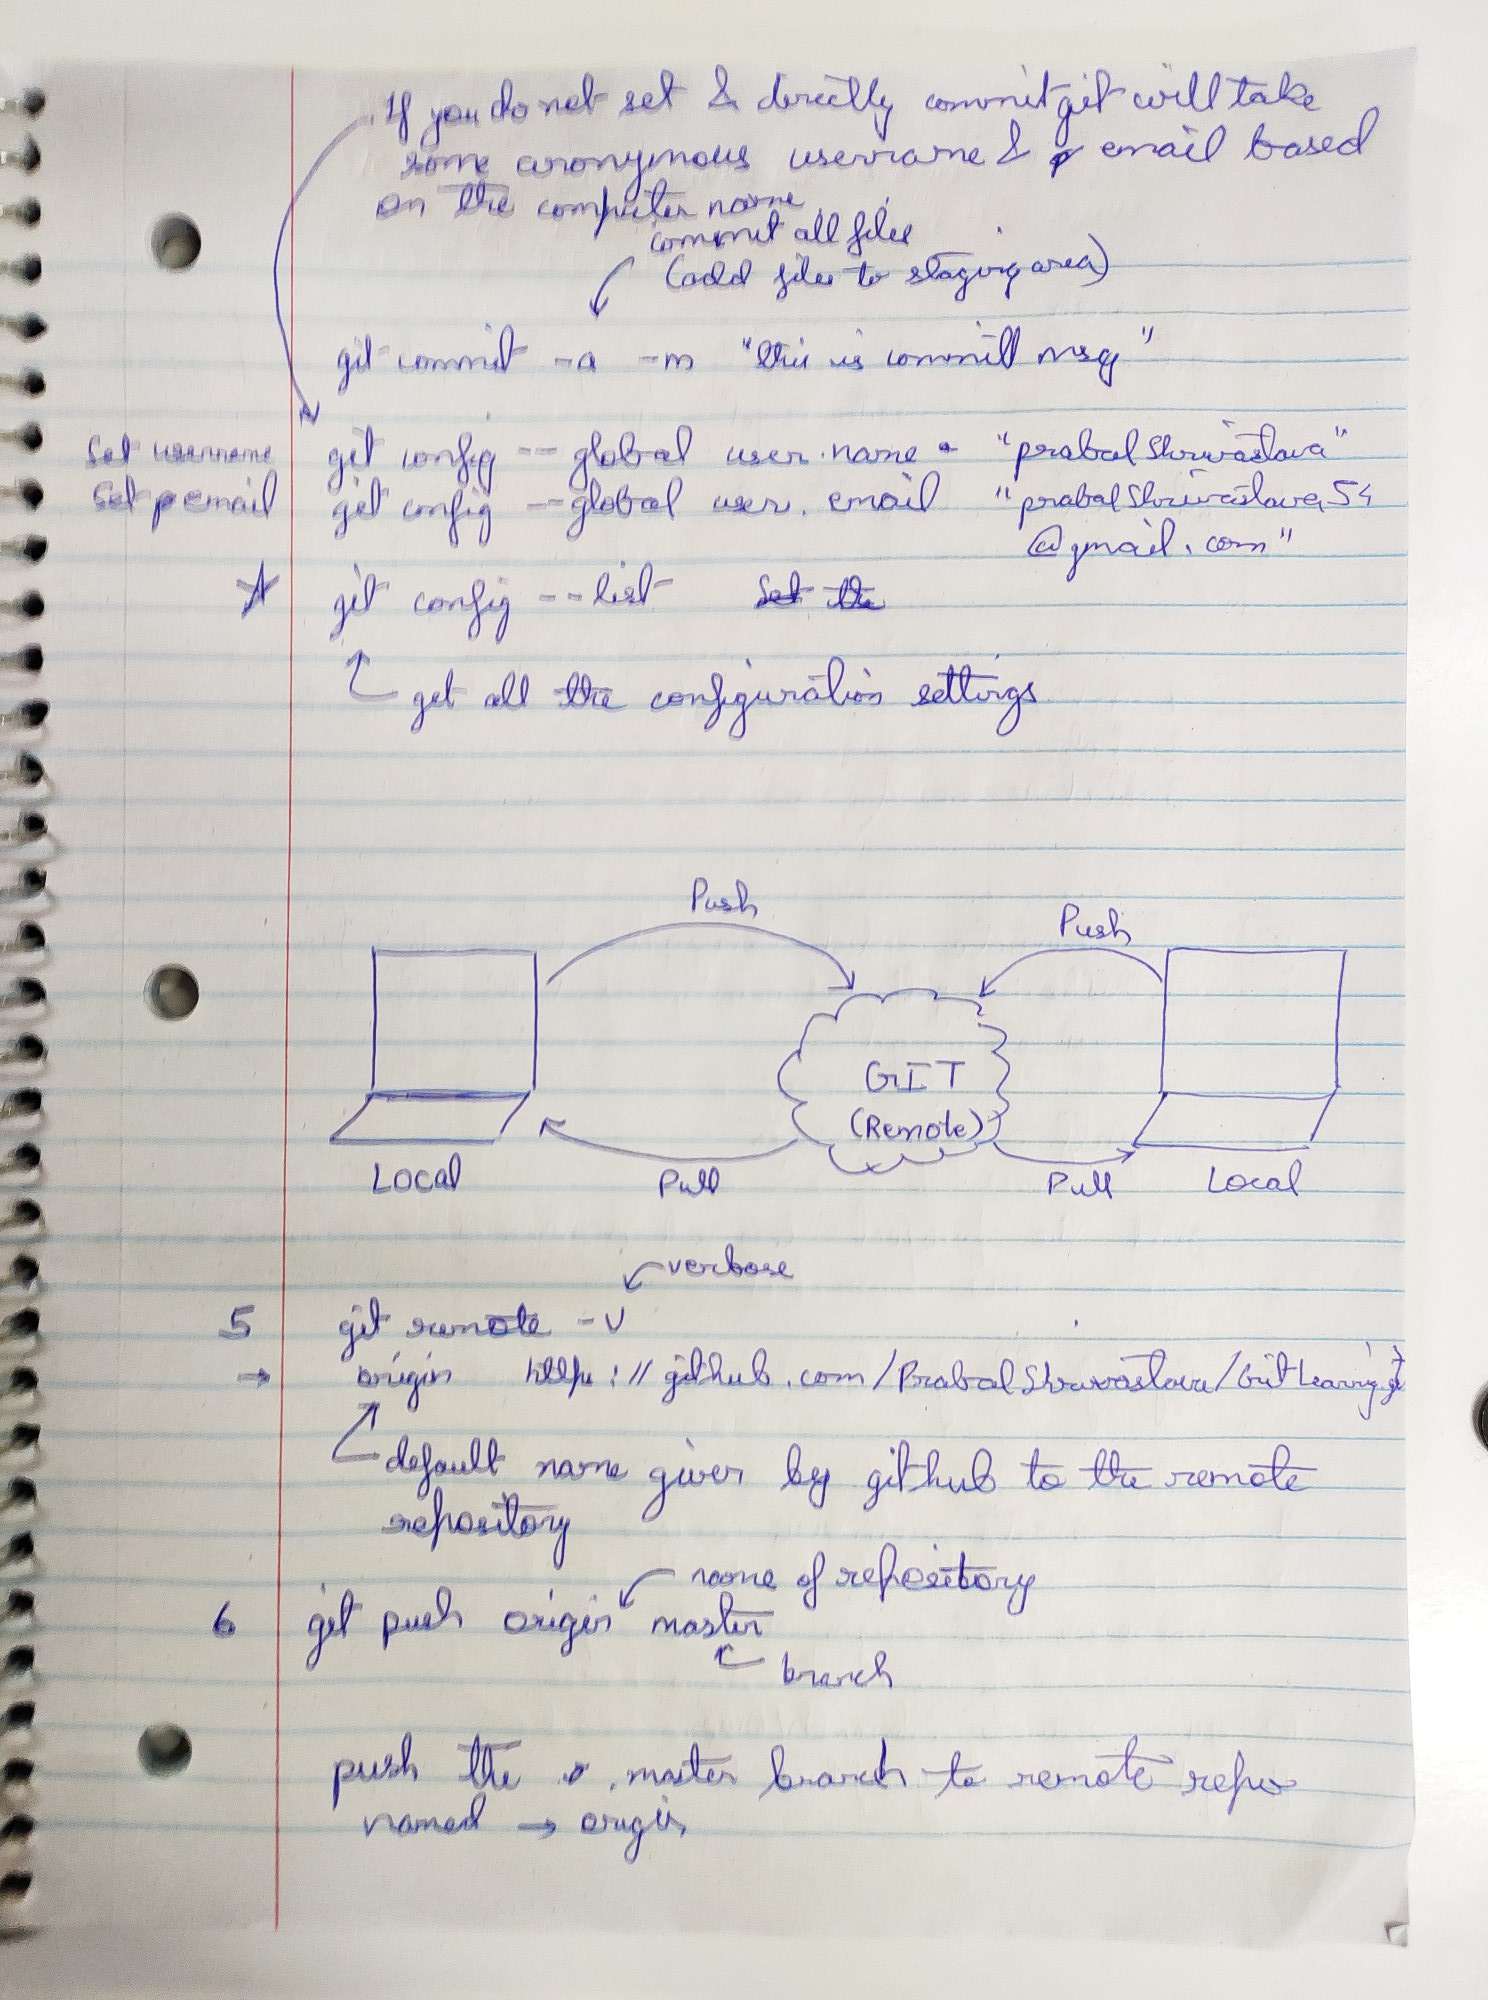 If you do not set & directly commit git will take
some anonymous username & email based
on the computer name
commit all files
(add files to staging area)
git commit -a -m "this is commit msg"
Set username git config --global user.name "prabalShrivastava"
Set email git config --global user.email "prabalShrivastava54
@gmail.com"
git config --list Set the
get all the configuration settings
Push
Push
GIT
(Remote)
Local Pull Pull Local
verbose
5 git remote -v
→ origin https://github.com/PrabalShrivastava/GitLearning.git
default name given by github to the remote
repository
name of repository
6 git push origin master
branch
push the master branch to remote repo
named → origin